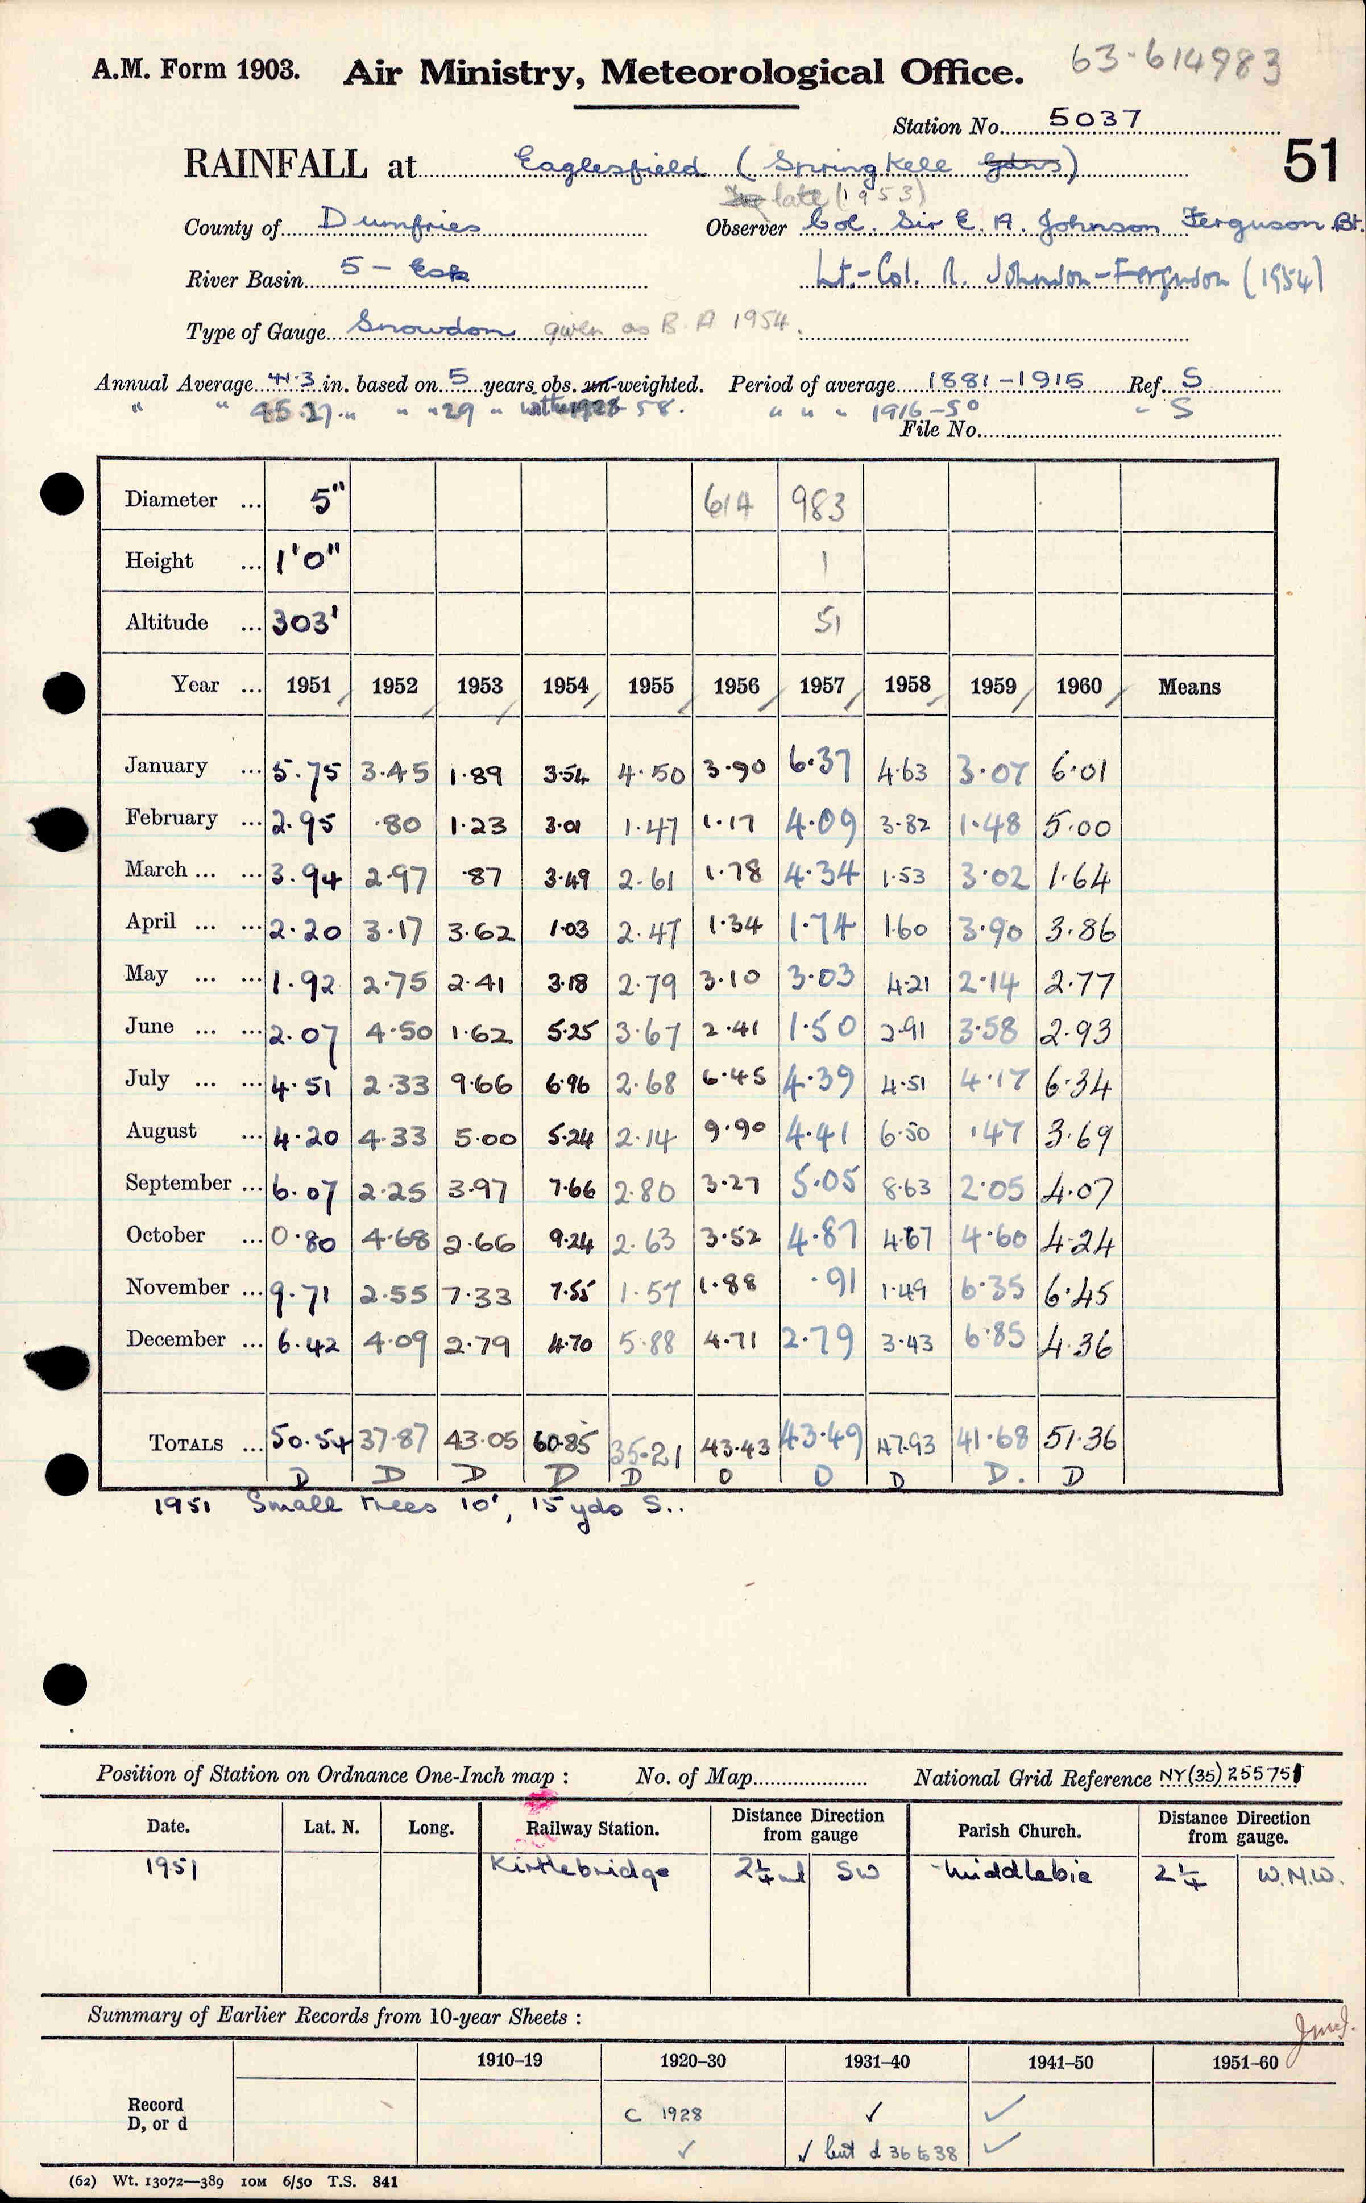 A.M. Form 1903. Air Ministry, Meteorological Office. 63-614983
Station No. 5037
RAINFALL at Eaglesfield (Springkell Gdns) 51
late (1953)
County of Dumfries Observer Col. Sir E. A. Johnson Ferguson Bt.
River Basin 5 - Esk Lt.-Col. A. Johnson-Ferguson (1954)
Type of Gauge Snowdon given as B. A 1954.
Annual Average 41.3 in. based on 5 years obs. un-weighted. Period of average 1881-1915 Ref. S
" " 45.27 " " " 29 " 58. " " " 1916-50 " S
File No.
Diameter ... 5" 614 983
Height ... 1'0" 1
Altitude ... 303' 51
Year ... 1951 1952 1953 1954 1955 1956 1957 1958 1959 1960 Means
January ... 5.75 3.45 1.89 3.54 4.50 3.90 6.37 4.63 3.07 6.01
February ... 2.95 .80 1.23 3.01 1.47 1.17 4.09 3.82 1.48 5.00
March ... ... 3.94 2.97 .87 3.49 2.61 1.78 4.34 1.53 3.02 1.64
April ... ... 2.20 3.17 3.62 1.03 2.47 1.34 1.74 1.60 3.90 3.86
May ... ... 1.92 2.75 2.41 3.18 2.79 3.10 3.03 4.21 2.14 2.77
June ... ... 2.07 4.50 1.62 5.25 3.67 2.41 1.50 2.91 3.58 2.93
July ... ... 4.51 2.33 9.66 6.96 2.68 6.45 4.39 4.51 4.17 6.34
August ... 4.20 4.33 5.00 5.24 2.14 9.90 4.41 6.50 .47 3.69
September ... 6.07 2.25 3.97 7.66 2.80 3.27 5.05 8.63 2.05 4.07
October ... 0.80 4.68 2.66 9.24 2.63 3.52 4.87 4.67 4.60 4.24
November ... 9.71 2.55 7.33 7.55 1.57 1.88 .91 1.49 6.35 6.45
December ... 6.42 4.09 2.79 4.70 5.88 4.71 2.79 3.43 6.85 4.36
TOTALS ... 50.54 37.87 43.05 60.85 35.21 43.43 43.49 47.93 41.68 51.36
D D D D D D D D D. D
1951 Small trees 10', 15 yds S..
Position of Station on Ordnance One-Inch map : No. of Map National Grid Reference NY(35)255751
Date. Lat. N. Long. Railway Station. Distance Direction from gauge Parish Church. Distance Direction from gauge.
1951 Kirtlebridge 2¼ ml SW Middlebie 2¼ W.N.W.
Summary of Earlier Records from 10-year Sheets :
1910–19 1920–30 1931–40 1941–50 1951–60
Record C 1928 ✓ ✓
D, or d ✓ ✓ but d 36 to 38 ✓
(62) Wt. 13072—389 10M 6/50 T.S. 841